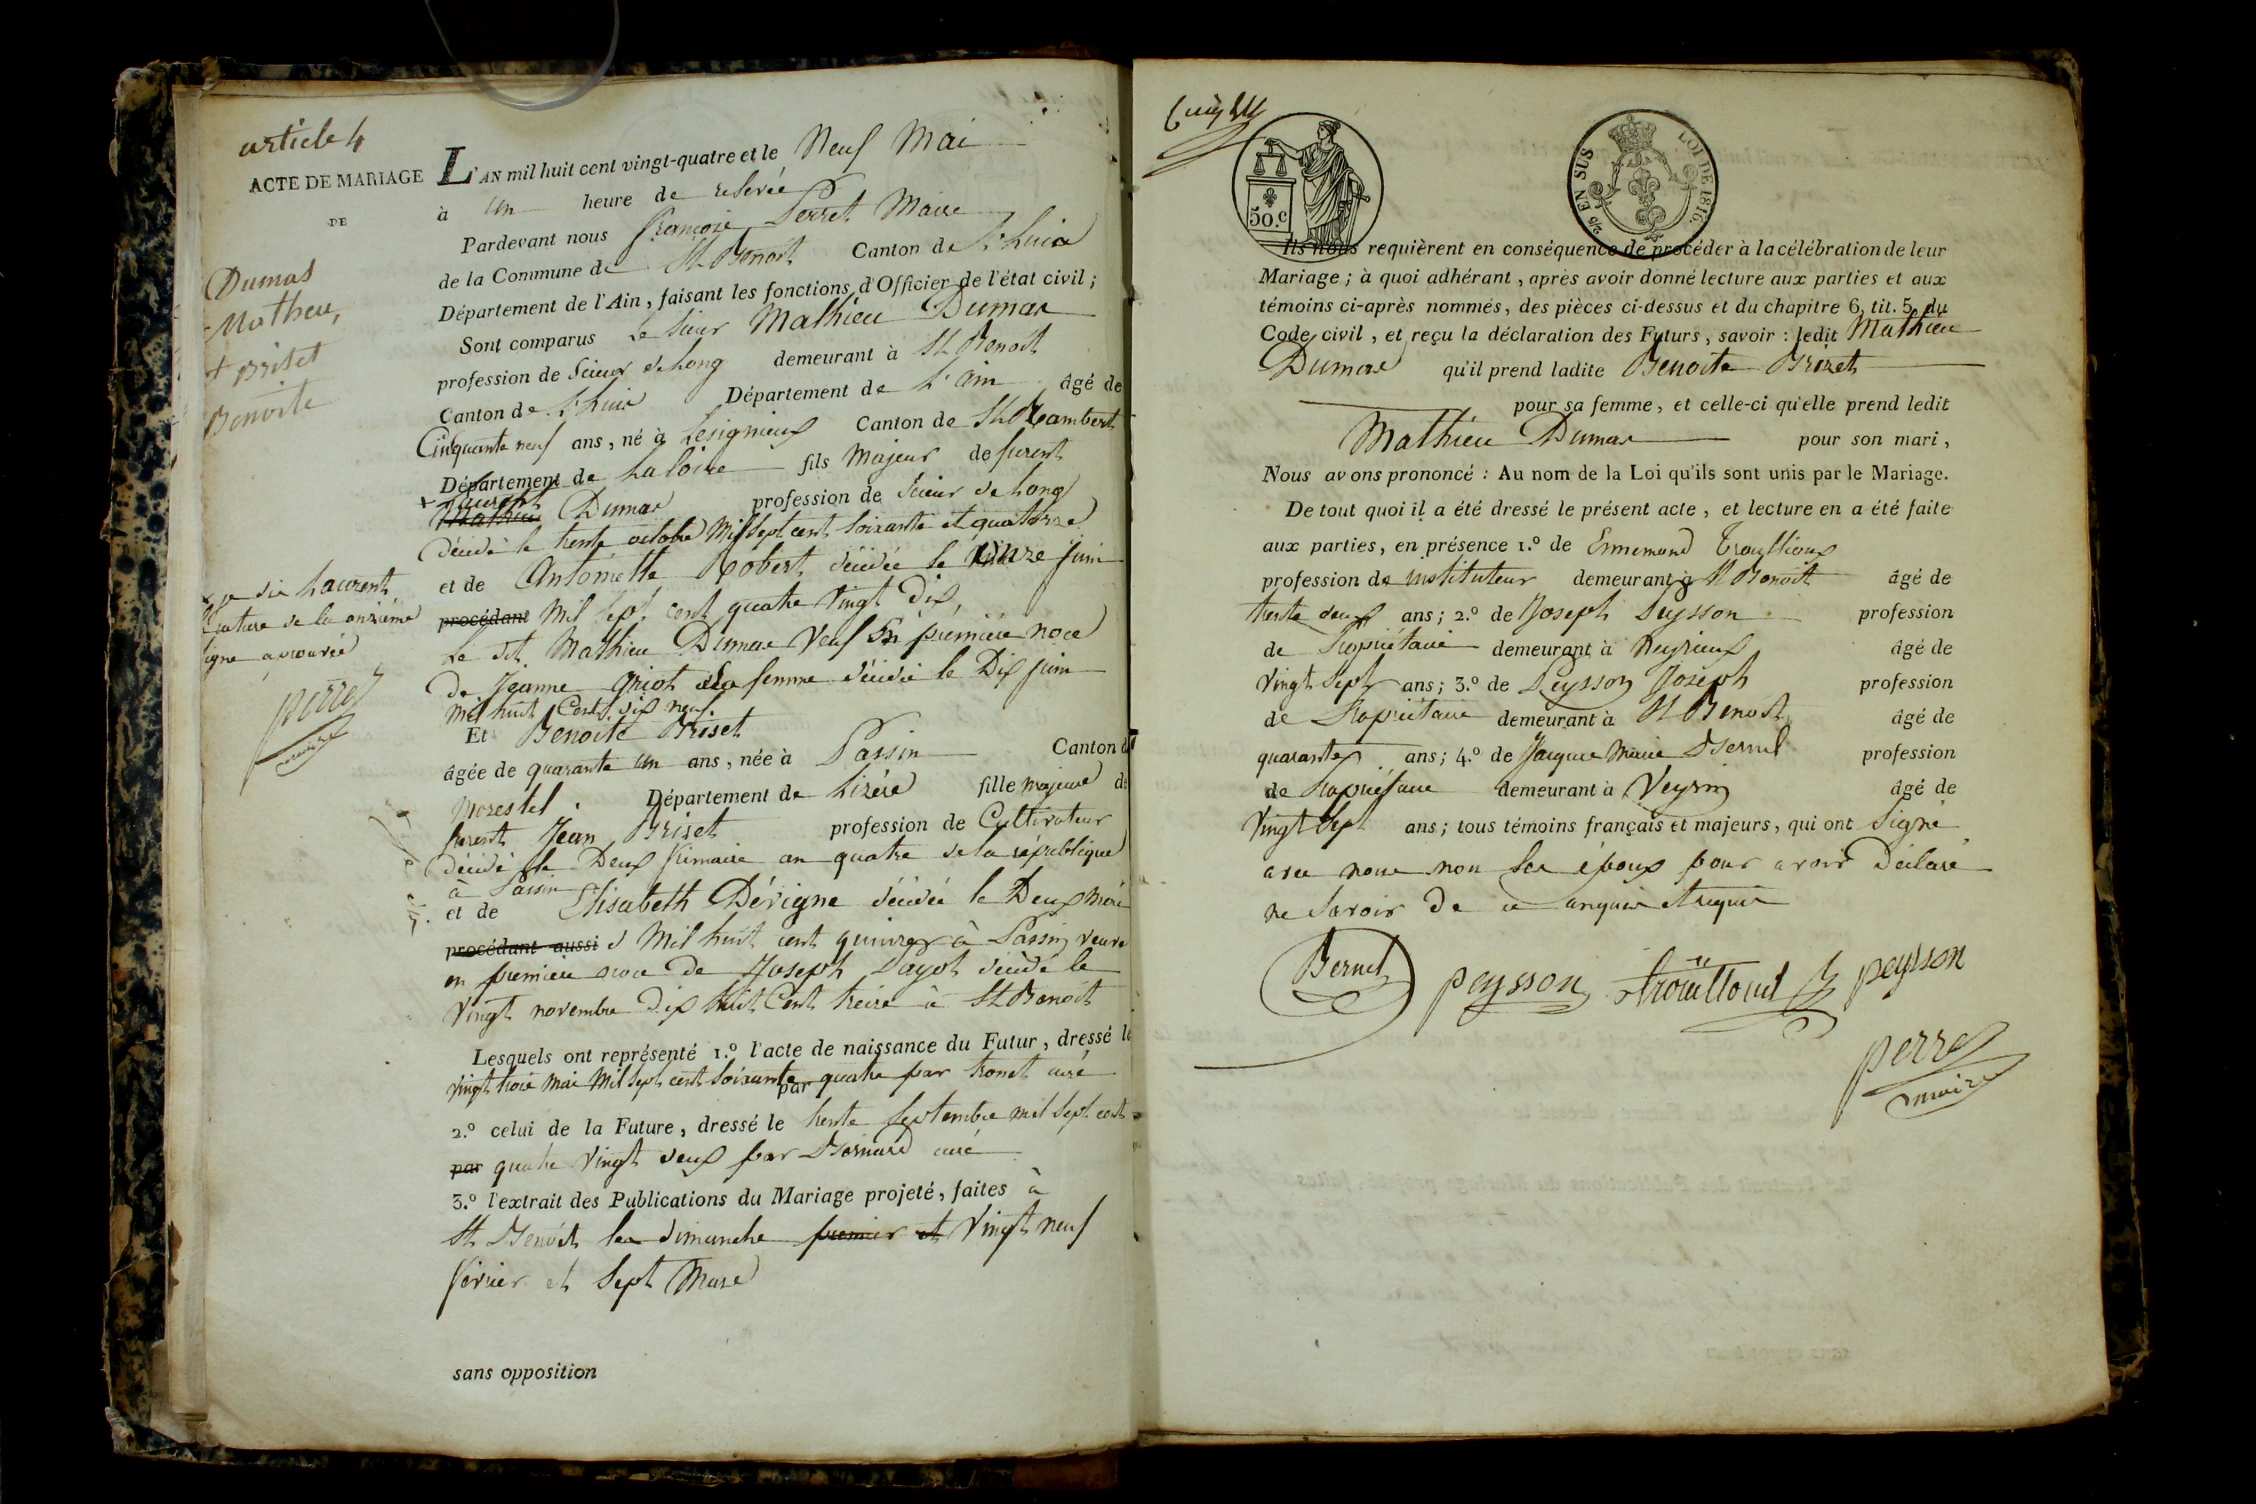 article 4
ACTE DE MARIAGE
DE
Dumas
Mathieu,
+ Briset
Benoite
L'AN mil huit cent vingt-quatre et le Neuf Mai
à un heure de relevée
Pardevant nous françois Perret Maire
de la Commune de St Benoit Canton de L'huis
Département de l'Ain, faisant les fonctions d'Officier de l'état civil;
Sont comparus Le sieur Mathieu Dumas
profession de Scieur de Long demeurant à St Benoit
Canton de L'huis Département de L'ain âgé de
Cinquante neuf ans, né à Lesignieux Canton de St Rambert
Département de La loire fils Majeur de furent
+ Laurent
Mathieu Dumas profession de Scieur de Long
décédé le trente octobre Mil sept cent soixante et quatorze
et de Antoinette Robert décédée le onze juin
procédant Mil sept cent quatre vingt dix,
Le dit Mathieu Dumas Veuf en première noce
de Jeanne Griot sa femme décédée le Dix juin
Mil huit Cent dix neuf.
Et Benoite Briset
âgée de quarante un ans, née à Passin Canton d
Morestel Département de Lizère fille majeure de
furent Jean Briset profession de Cultivateur
décédé le Deux frimaire an quatre de la république
à Passin
et de Elisabeth Dévigne décédée le Deux mai
procédant aussi Mil huit cent quinze à Passin veuve
en première noce de Joseph Payot décédé le
Vingt novembre Dix huit Cent treize à St Benoit
Lesquels ont représenté 1.º l'acte de naissance du Futur, dressé le
vingt trois mai Mil sept cent soixante quatre par tronet curé
par
2.º celui de la Future, dressé le trente septembre mil sept cent
par quatre vingt deux par Bernard curé
3.º l'extrait des Publications du Mariage projeté, faites à
St Benoit les dimanche premier et Vingt neuf
février et Sept Mars
sans opposition
Laurent
rature de la onzième
igne aprouvée
perret
maire
50.c
2/5 EN SUS
LOI DE 1816.
Ils nous requièrent en conséquence de procéder à la célébration de leur
Mariage; à quoi adhérant, après avoir donné lecture aux parties et aux
témoins ci-après nommés, des pièces ci-dessus et du chapitre 6, tit. 5, du
Code civil, et reçu la déclaration des Futurs, savoir: ledit Mathieu
Dumas qu'il prend ladite Benoite Brizet
pour sa femme, et celle-ci qu'elle prend ledit
Mathieu Dumas pour son mari,
Nous avons prononcé: Au nom de la Loi qu'ils sont unis par le Mariage.
De tout quoi il a été dressé le présent acte, et lecture en a été faite
aux parties, en présence 1.º de Ennemond Trouillioux
profession de instituteur demeurant à St Benoit âgé de
trente deux ans; 2.º de Joseph Peysson profession
de Propriétaire demeurant à Neyrieux âgé de
Vingt Sept ans; 3.º de Peysson Joseph profession
de Propriétaire demeurant à St Benoit âgé de
quarante ans; 4.º de Jacque Marie Bernel profession
de Propriétaire demeurant à Veyrin âgé de
Vingt Sept ans; tous témoins français et majeurs, qui ont Signé
avec nous non les époux pour avoir Déclaré
ne Savoir De ce enquis et requis
Bernel peysson peysson
perret
maire